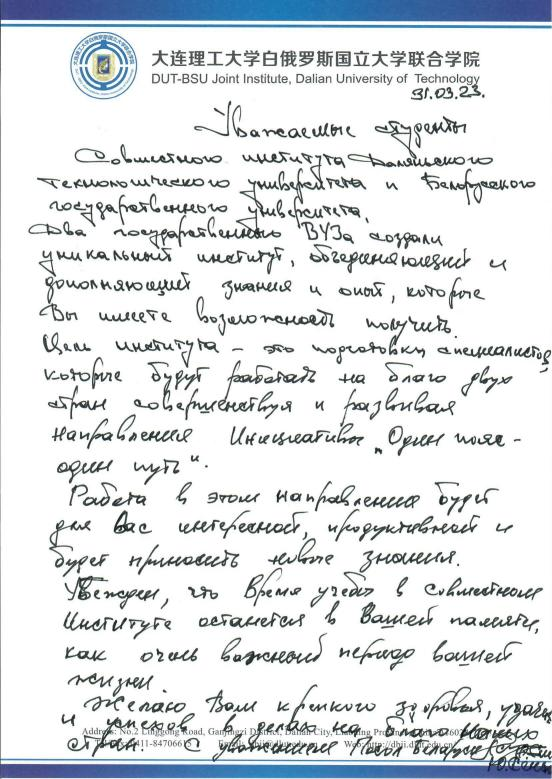 大连理工大学白俄罗斯国立大学联合学院
DUT-BSU Joint Institute, Dalian University of Technology
31.03.23.
Уважаемые студенты
Совместного института Даляньского
технологического университета и Белорусского
государственного университета.
Два государственных ВУЗа создали
уникальный институт, объединяющий и
дополняющий знания и опыт, которые
Вы имеете возможность получить.
Цель института – это подготовка специалистов,
которые будут работать на благо двух
стран совершенствуя и развивая
направления Инициативы „Один пояс -
один путь".
Работа в этом направлении будет
для Вас интересной, продуктивной и
будет приносить новые знания.
Убежден, что время учебы в совместном
Институте останется в Вашей памяти,
как очень важный период вашей
жизни.
Желаю Вам крепкого здоровья, удачи
и успехов в делах на благо наших
Address: No.2 Linggong Road, Ganjingzi District, Dalian City, Liaoning
стран. С уважением Посол Беларуси